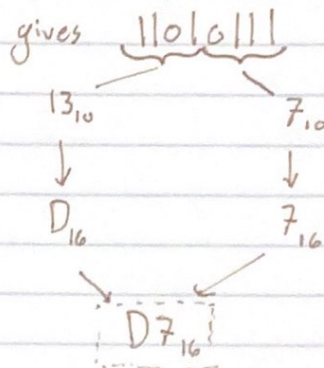 gives 11010111
13₁₀ 7₁₀
D₁₆ 7₁₆
D7₁₆